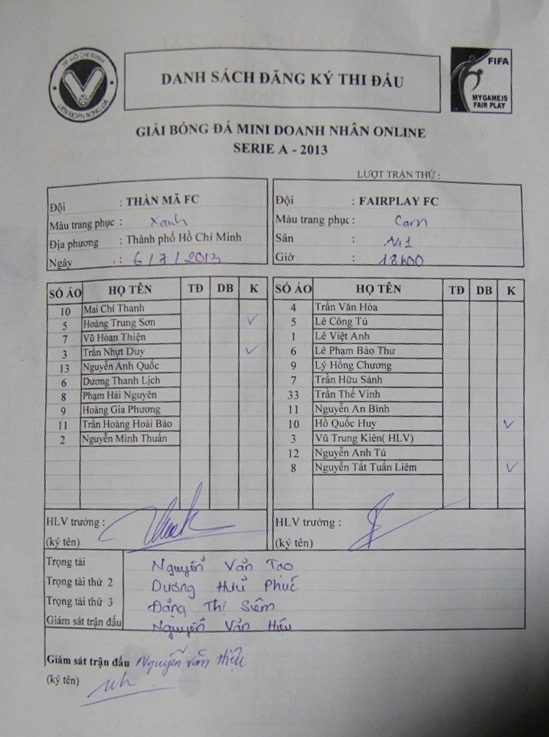 TP HỒ CHÍ MINH
LIÊN ĐOÀN BÓNG ĐÁ
DANH SÁCH ĐĂNG KÝ THI ĐẤU
FIFA
MY GAME IS
FAIR PLAY
GIẢI BÓNG ĐÁ MINI DOANH NHÂN ONLINE
SERIE A - 2013
LƯỢT TRẬN THỨ :
Đội : THẦN MÃ FC
Màu trang phục : Xanh
Địa phương : Thành phố Hồ Chí Minh
Ngày : 6/7/2013
Đội : FAIRPLAY FC
Màu trang phục : Cam
Sân : A41
Giờ : 18h00
SỐ ÁO HỌ TÊN TĐ DB K
10 Mai Chí Thanh
5 Hoàng Trung Sơn ✓
7 Vũ Hoàn Thiện
3 Trần Nhựt Duy ✓
13 Nguyễn Anh Quốc
6 Dương Thanh Lịch
8 Phạm Hải Nguyên
9 Hoàng Gia Phương
11 Trần Hoàng Hoài Bảo
2 Nguyễn Minh Thuấn
SỐ ÁO HỌ TÊN TĐ DB K
4 Trần Văn Hòa
5 Lê Công Tú
1 Lê Việt Anh
6 Lê Phạm Bảo Thư
9 Lý Hồng Chương
7 Trần Hữu Sánh
33 Trần Thế Vinh
11 Nguyễn An Bình
10 Hồ Quốc Huy ✓
3 Vũ Trung Kiên( HLV)
12 Nguyễn Anh Tú
8 Nguyễn Tất Tuấn Liêm ✓
HLV trưởng :
(ký tên)
HLV trưởng :
(ký tên)
Trọng tài Nguyễn Văn Tạo
Trọng tài thứ 2 Dương Hữu Phúc
Trọng tài thứ 3 Đặng Thị Siêm
Giám sát trận đấu Nguyễn Văn Hiếu
Giám sát trận đấu Nguyễn Văn Hiếu
(ký tên)